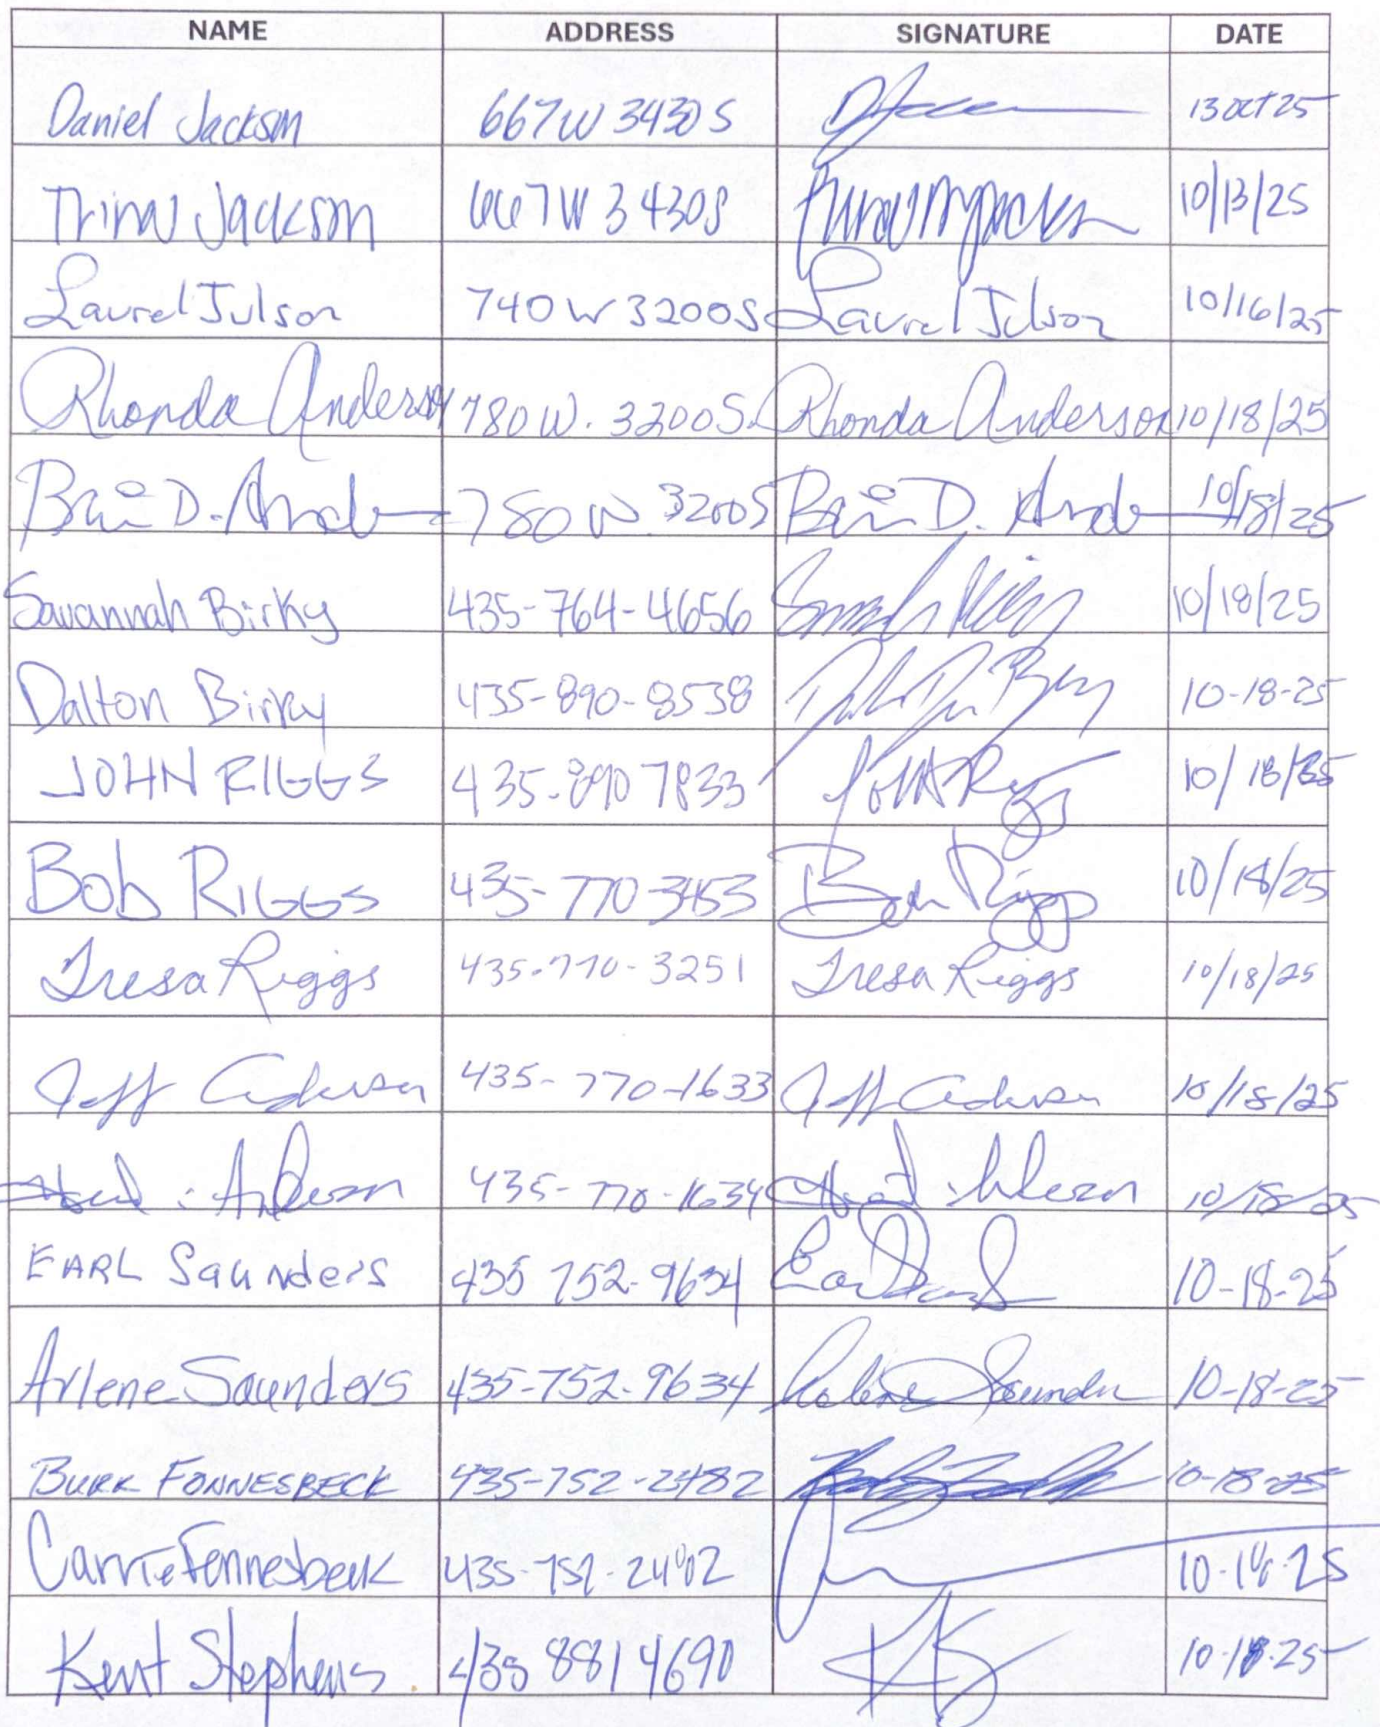 NAME ADDRESS SIGNATURE DATE
Daniel Jackson 667 W 3430 S 13 OCT 25
Trina Jackson 667 W 3430 S 10/13/25
Laurel Julson 740 W 3200 S Laurel Julson 10/16/25
Rhonda Anderson 780 W. 3200 S. Rhonda Anderson 10/18/25
Brian D. 780 W 3200 S Brian D. 10/18/25
Savannah Birky 435-764-4656 10/18/25
Dalton Birky 435-890-8538 10-18-25
JOHN RIGGS 435-890 7833 10/18/25
Bob RIGGS 435-770-3453 Bob Riggs 10/18/25
Tresa Riggs 435-770-3251 Tresa Riggs 10/18/25
Jeff Anderson 435-770-1633 Jeff Anderson 10/18/25
Anderson 435-770-1634 Anderson 10/18/25
EARL Saunders 435 752-9634 10-18-25
Arlene Saunders 435-752-9634 Arlene Saunders 10-18-25
BURK FONNESBECK 435-752-2482 10-18-25
Carrie Fonnesbeck 435-752-2482 10-18-25
Kent Stephens 435 881 4690 10-18-25